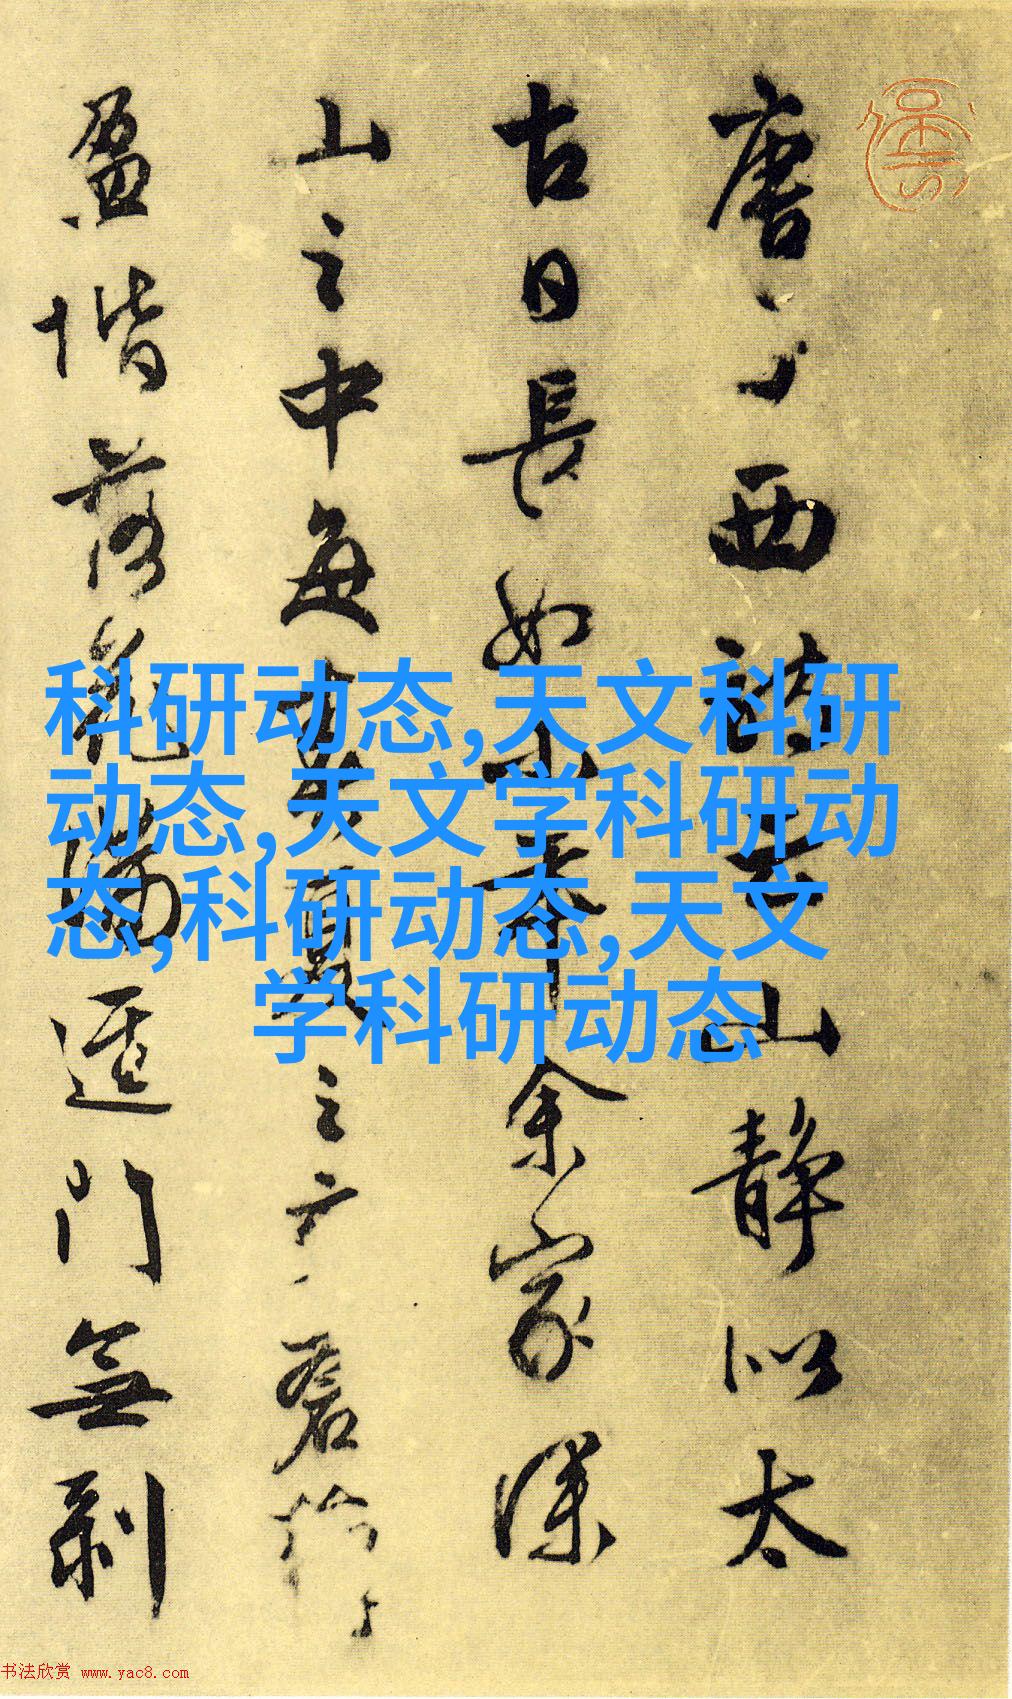 唐子西詩云山静似太
古日長如小年余家深
山之中每春夏之交蒼蘚
盈堦落花滿逕門無剥
科研动态,天文科研
动态,天文学科研动
态,科研动态,天文
学科研动态
书法欣赏 www.yac8.com